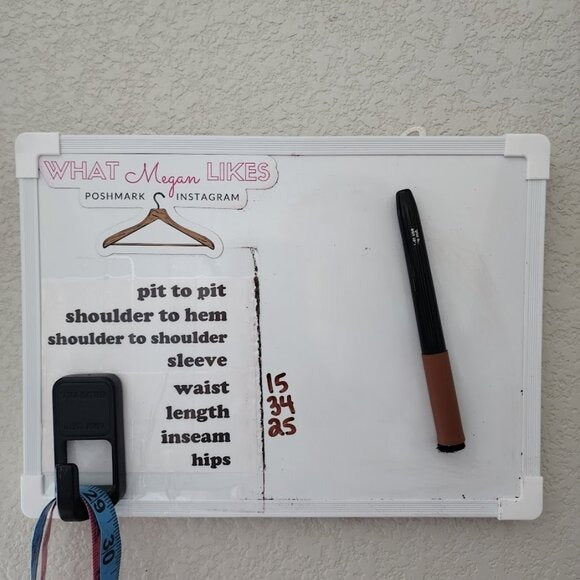 WHAT Megan LIKES
POSHMARK INSTAGRAM
pit to pit
shoulder to hem
shoulder to shoulder
sleeve
waist 15
length 34
inseam 25
hips
29
30